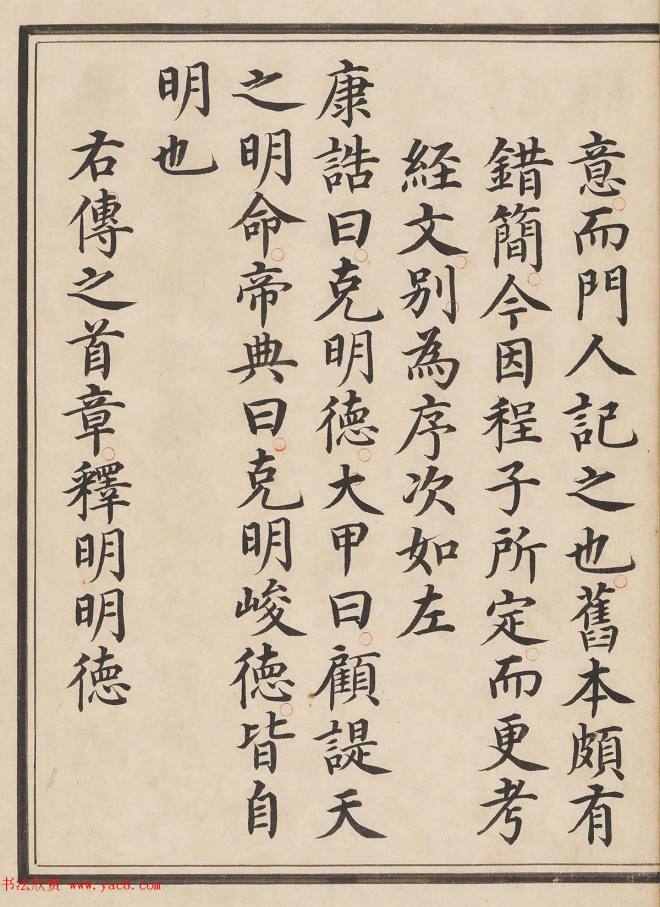 意而門人記之也舊本頗有
錯簡今因程子所定而更考
経文别為序次如左
康誥曰克明徳大甲曰顧諟天
之明命帝典曰克明峻徳皆自
明也
右傳之首章釋明明徳
书法欣赏 www.yac8.com